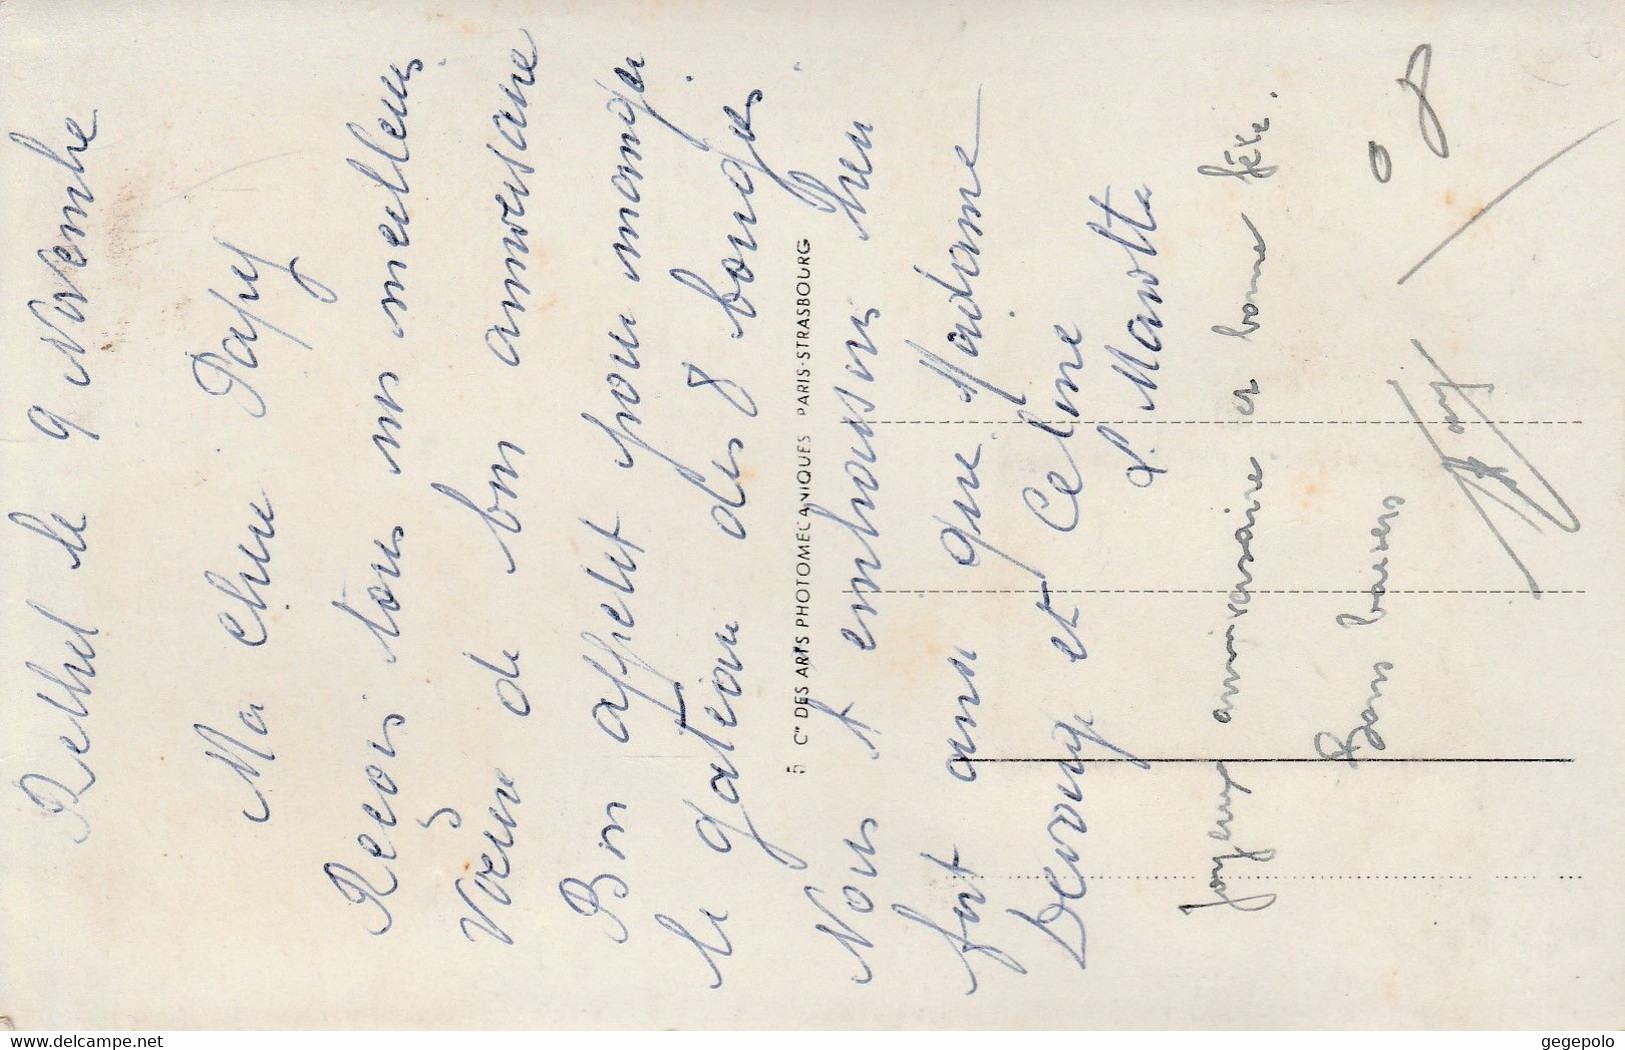 Rethel le 9 Novembre
Ma chère Papy
Reçois tous nos meilleurs
Vœux de bon anniversaire
Bon appétit pour manger
le gateau des 8 bougies
Nous t embrassons bien
fort ainsi que Madame
et Celine
L. Marotte
joyeux anniversaire et bonne fête.
Bons baisers
5 Cie DES ARTS PHOTOMECANIQUES PARIS-STRASBOURG
delcampe.net
gegepolo